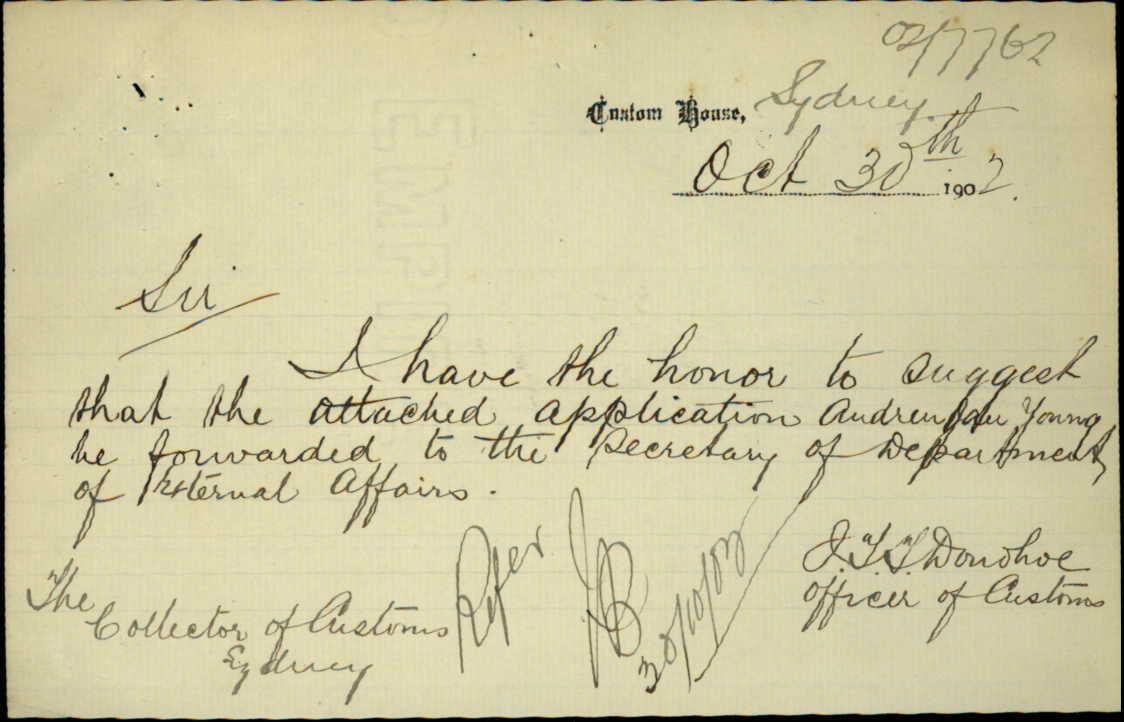 02/7762
Custom House, Sydney
Oct 30th 1902.
Sir
I have the honor to suggest
that the attached application Andrew Young
be forwarded to the Secretary of Department
of External Affairs.
J.T.T. Donohoe
Officer of Customs
The
Collector of Customs
Sydney
Refer
30/10/02
EMPI